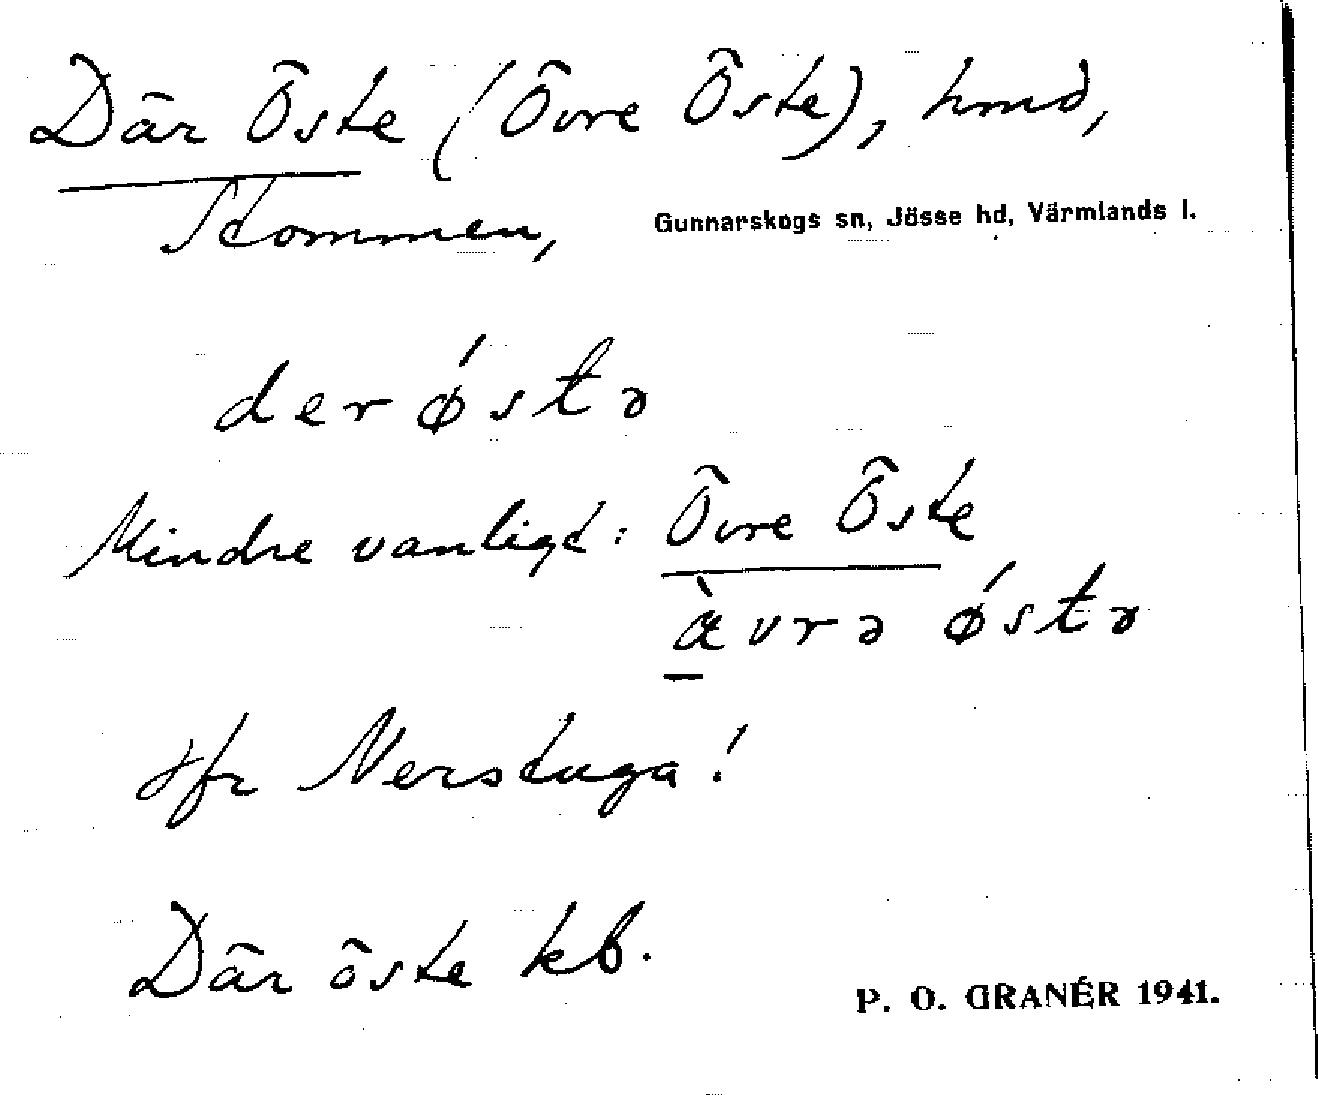 Där Öste (Övre Öste), hmd,
Stommen,
Gunnarskogs sn, Jösse hd, Värmlands l.
der ǿstə
Mindre vanligt: Övre Öste
æ̀vrə ǿstə
Jfr Nerstuga!
Där öste kb.
P. O. GRANÉR 1941.